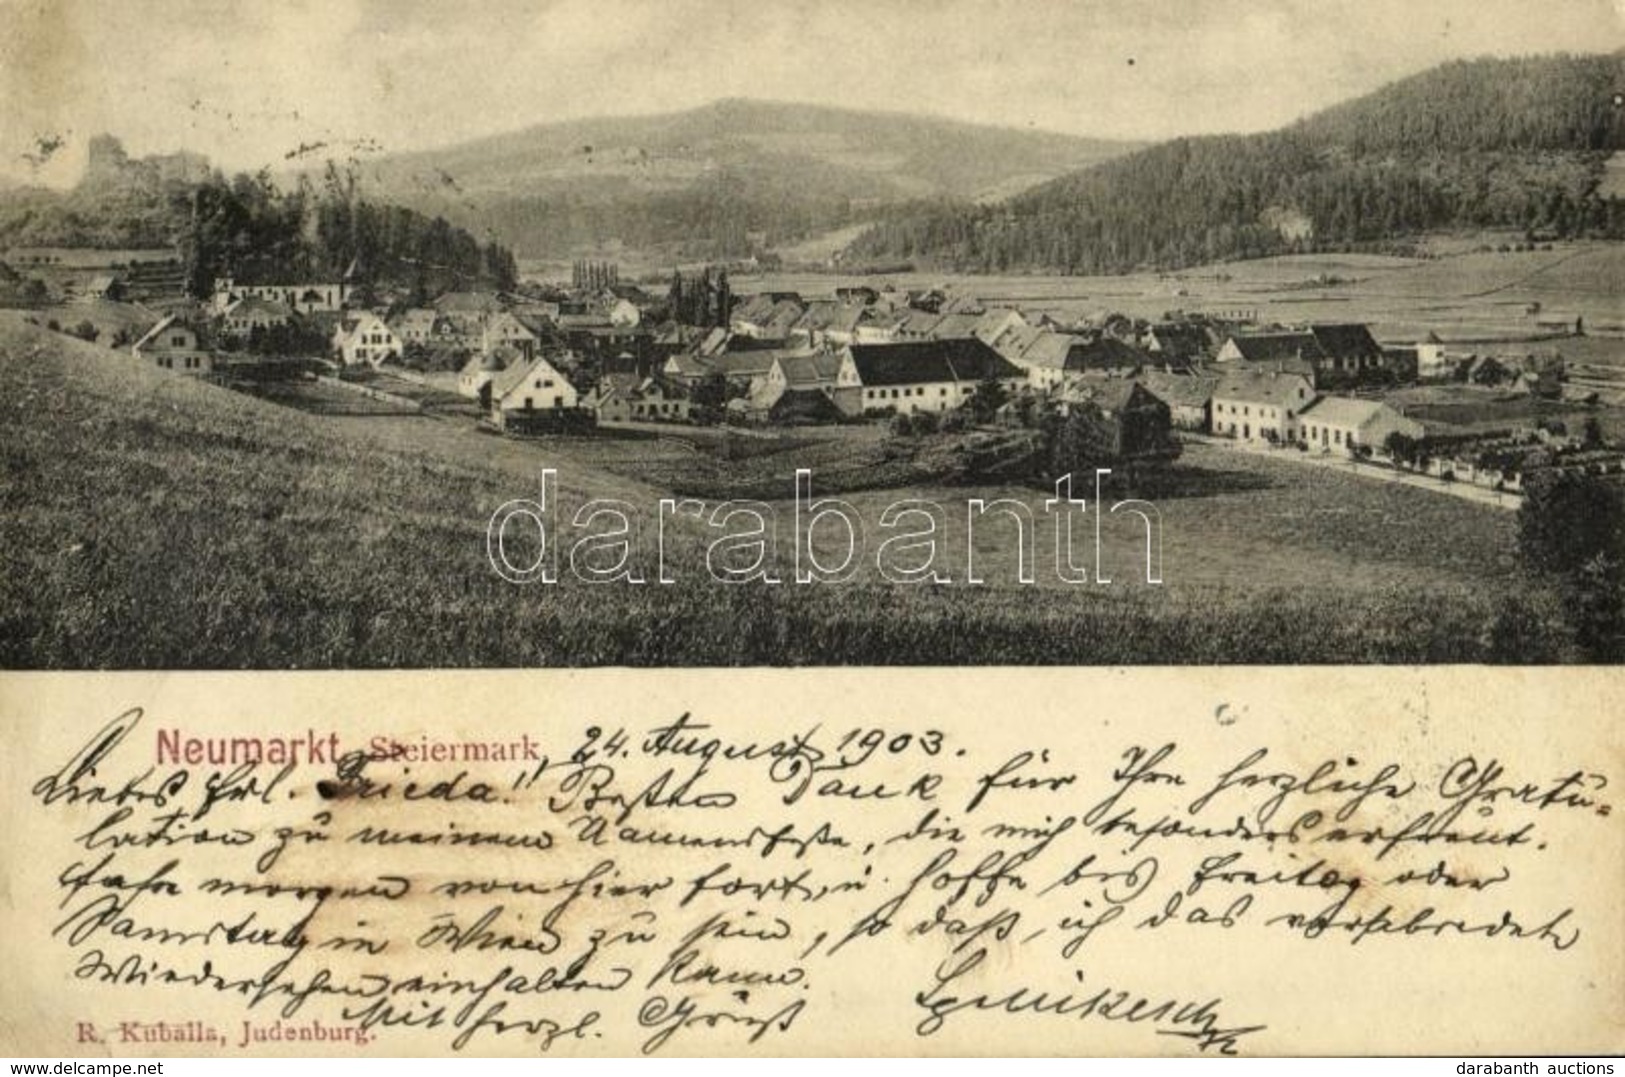 darabanth
Neumarkt Steiermark, 24. August 1903.
Liebes Frl. Frieda! Besten Dank für Ihre herzliche Gratu-
lation zu meinem Namensfeste, die mich besonders erfreut.
Fahre morgen von hier fort, u. hoffe bis Freitag oder
Samstag in Wien zu sein, so daß ich das verabredete
Wiedersehen einhalten kann.
Mit herzl. Gruß
R. Kuballa, Judenburg.
www.delcampe.net
darabanth auctions